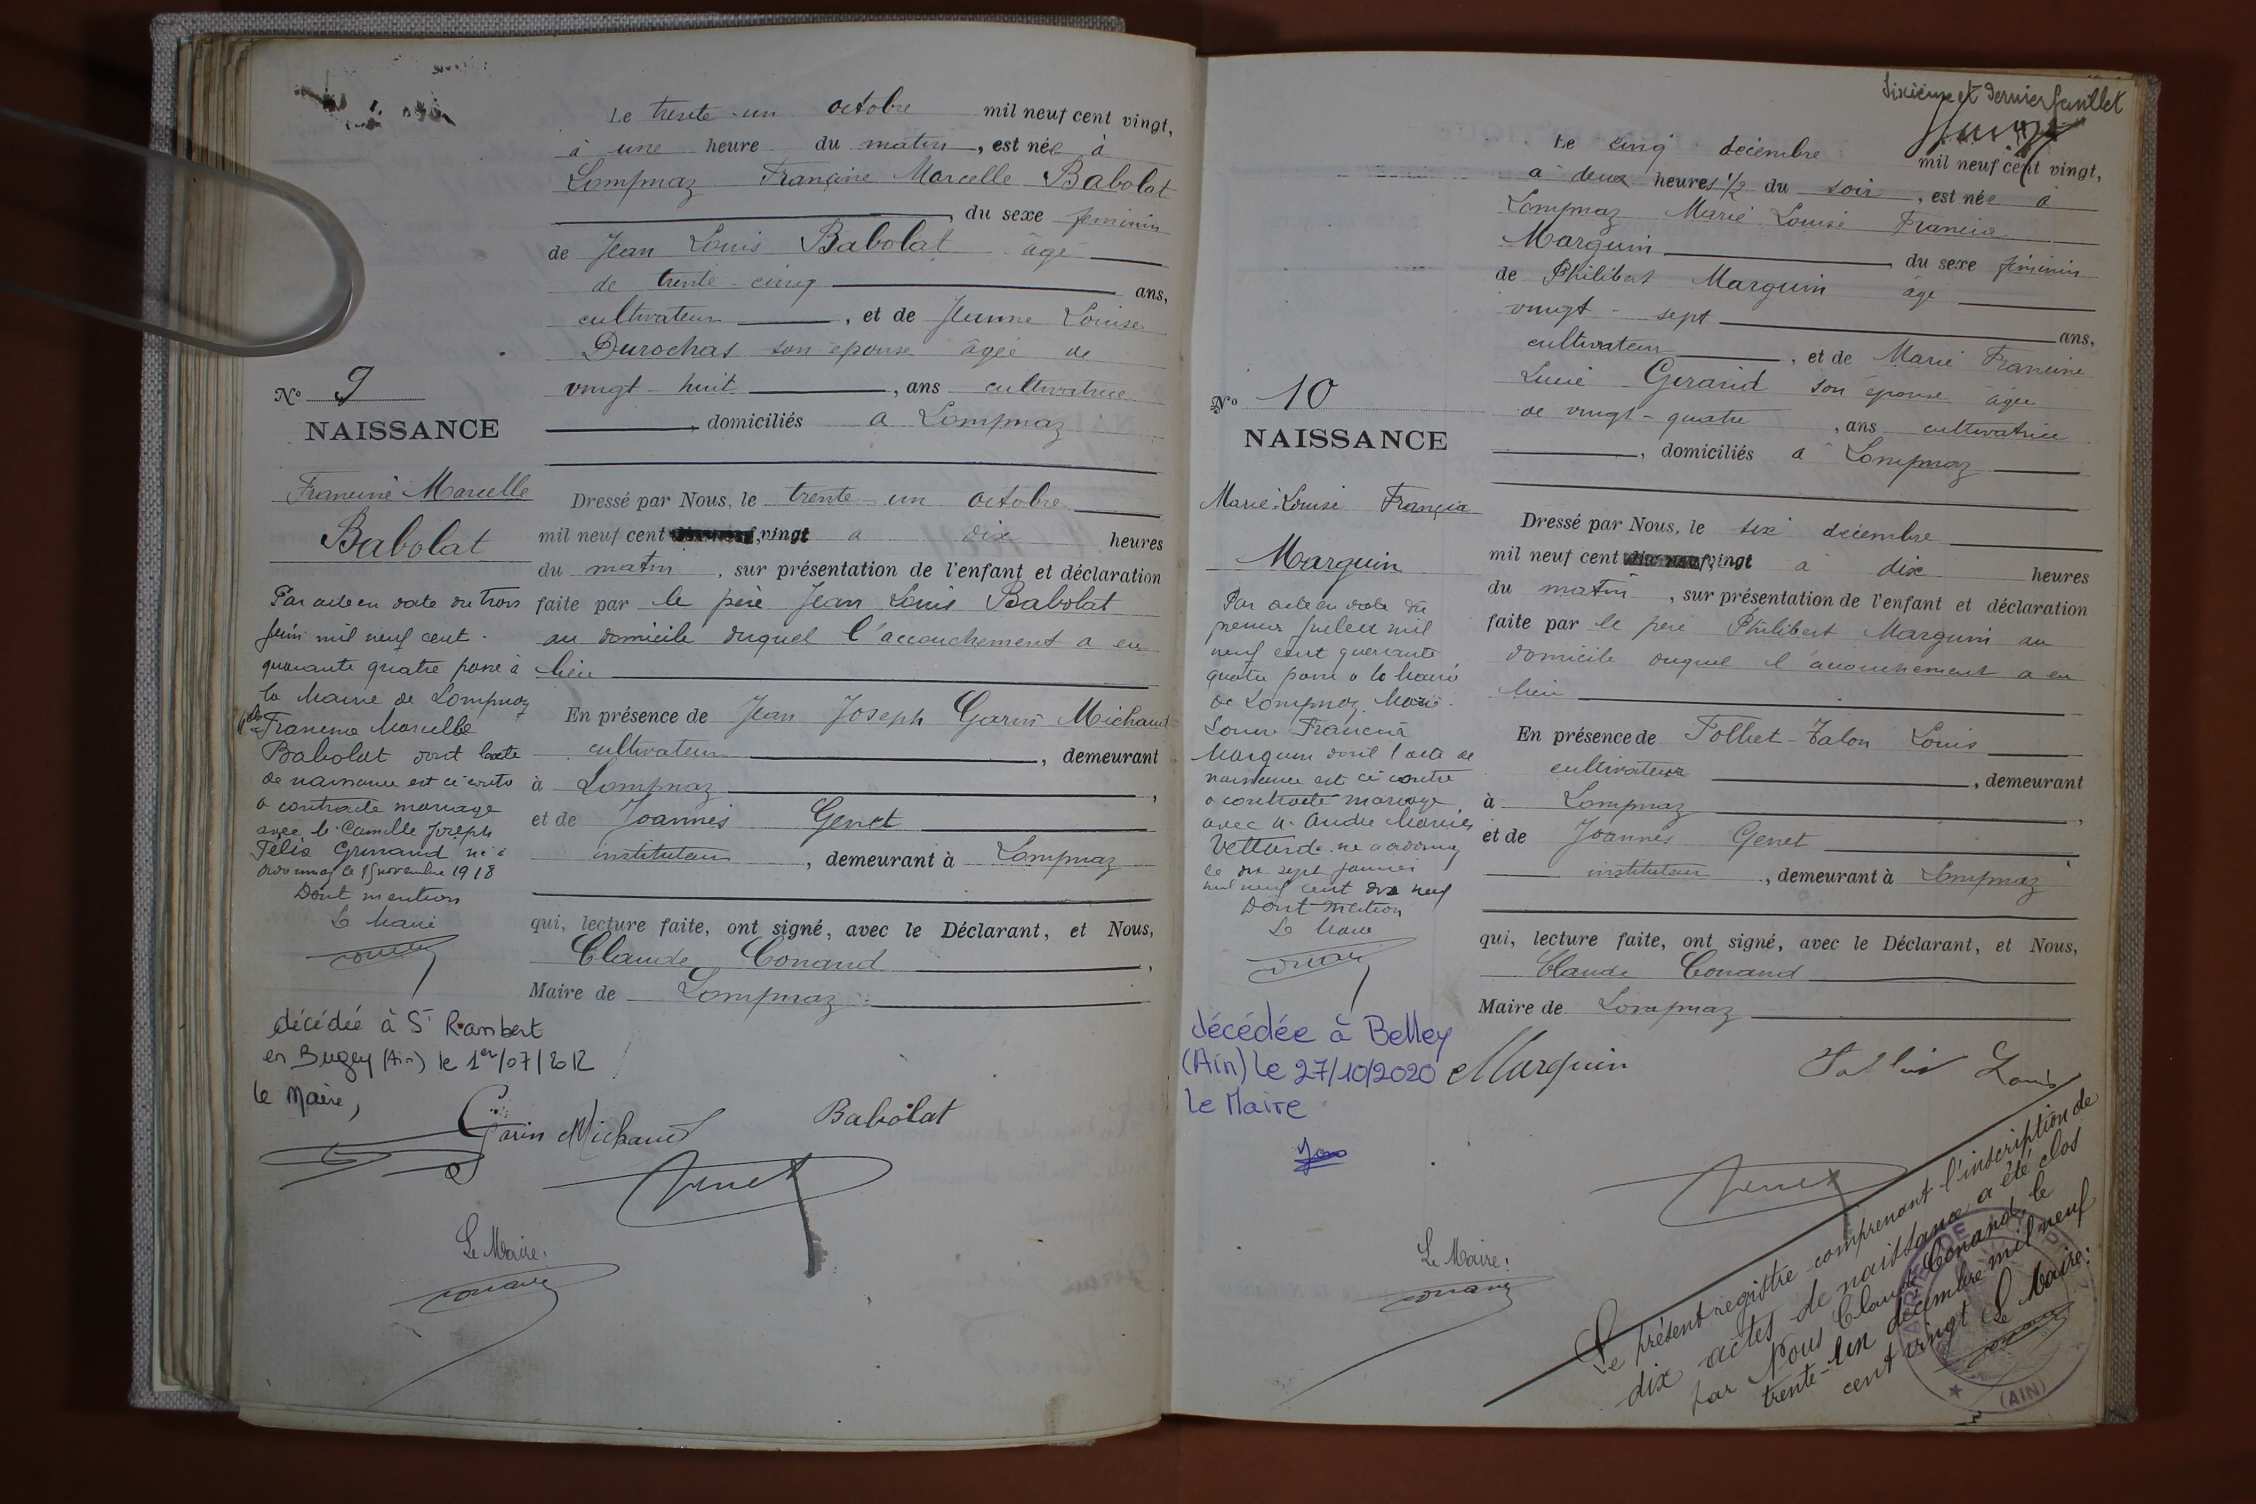 Le trente-un octobre mil neuf cent vingt,
à une heure du matin, est née à
Lompnaz Francine Marcelle Babolat
, du sexe féminin
de Jean Louis Babolat âgé
de trente-cinq ans,
cultivateur, et de Jeanne Louise
Durochat son épouse âgée de
vingt-huit, ans cultivatrice
, domiciliés à Lompnaz
No 9
NAISSANCE
Francine Marcelle
Babolat
Dressé par Nous, le trente-un octobre
mil neuf cent vingt à dix heures
du matin, sur présentation de l'enfant et déclaration
faite par le père Jean Louis Babolat
au domicile duquel l'accouchement a eu
lieu
En présence de Jean Joseph Garin Michaud
cultivateur, demeurant
à Lompnaz,
et de Joannès Genet
instituteur, demeurant à Lompnaz
qui, lecture faite, ont signé, avec le Déclarant, et Nous,
Claude Conand,
Maire de Lompnaz
Par acte en date du trois
juin mil neuf cent
quarante quatre passé à
la Mairie de Lompnaz
Francine Marcelle
Babolat dont l'acte
de naissance est ci contre
a contracté mariage
avec Mr Camille Joseph
Félix Grinand né à
Ordonnaz le 15 novembre 1918
Dont mention
Le Maire
décédée à St Rambert
en Bugey (Ain) le 1er/07/2012
le Maire,
Garin Michaud
Babolat
Genet
Le Maire:
Conand
Sixième et dernier feuillet
Le cinq décembre mil neuf cent vingt,
à deux heures 1/2 du soir, est née à
Lompnaz Marie Louise Francia
Marquin du sexe féminin
de Philibert Marquin âgé
vingt-sept ans,
cultivateur, et de Marie Francine
Lucie Geraud son épouse âgée
de vingt-quatre, ans cultivatrice
, domiciliés à Lompnaz
No 10
NAISSANCE
Marie-Louise Francia
Marquin
Dressé par Nous, le six décembre
mil neuf cent vingt à dix heures
du matin, sur présentation de l'enfant et déclaration
faite par le père Philibert Marquin au
domicile duquel l'accouchement a eu
lieu
En présence de Folliet-Talon Louis
cultivateur, demeurant
à Lompnaz,
et de Joannès Genet
instituteur, demeurant à Lompnaz
qui, lecture faite, ont signé, avec le Déclarant, et Nous,
Claude Conand
Maire de Lompnaz
Par acte en date du
premier juillet mil
neuf cent quarante
quatre passé à la Mairie
de Lompnaz Marie
Louise Francia
Marquin dont l'acte de
naissance est ci contre
a contracté mariage
avec Mr André Marius
Vettard né à Ordonnaz
le dix sept janvier
mil neuf cent dix neuf
Dont mention
Le Maire
décédée à Belley
(Ain) le 27/10/2020
Le Maire
Marquin
Louis
Genet
Le Maire:
Conand
Le présent registre comprenant l'inscription de
dix actes de naissance a été clos
par Nous Claude Conand, le
trente-un décembre mil neuf
cent vingt Le Maire:
MAIRIE DE
(AIN)